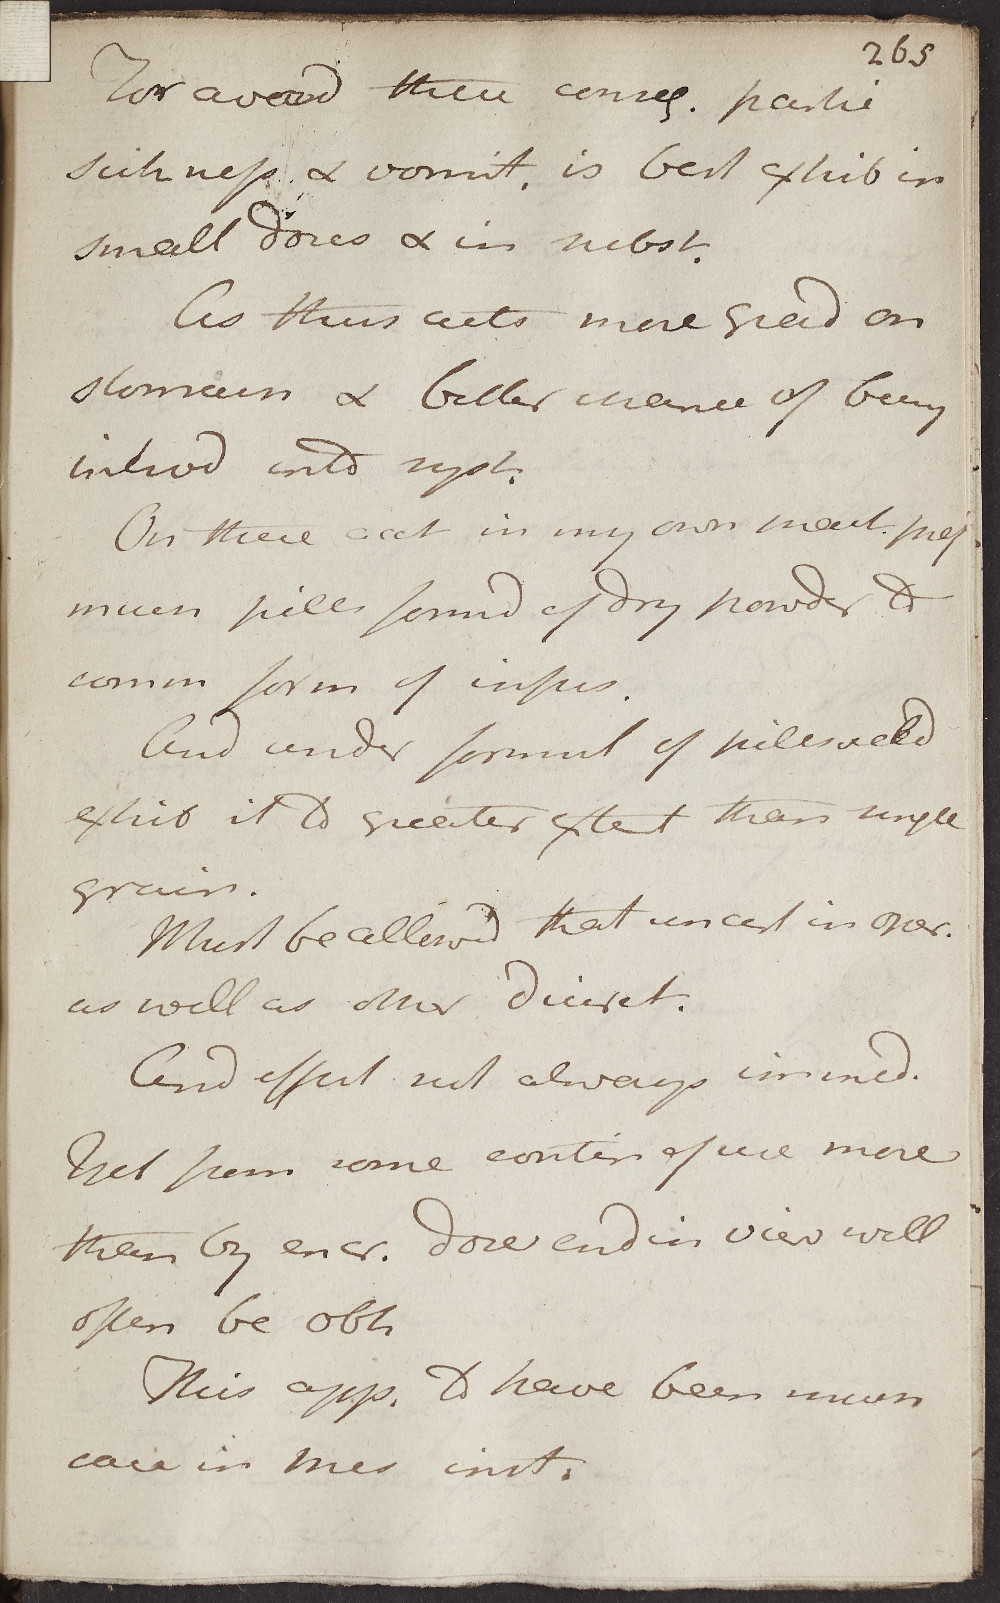 265
For avoid these conseq. partic
sickness & vomit. is best exhib in
small doses & in subst.
As thus acts more grad on
stomach & better chance of being
introd into syst.
On these acct in my own pract. pref
much pills formd of dry powder to
comm form of infus.
And under formul of pills
exhib it to greater extent than single
grain.
Must be allowd that uncert in oper.
as well as other diuret.
And effect not always immed.
Yet from some contin of use more
than by encr. dose end in view will
often be obt
This app. to have been much
case in this inst.